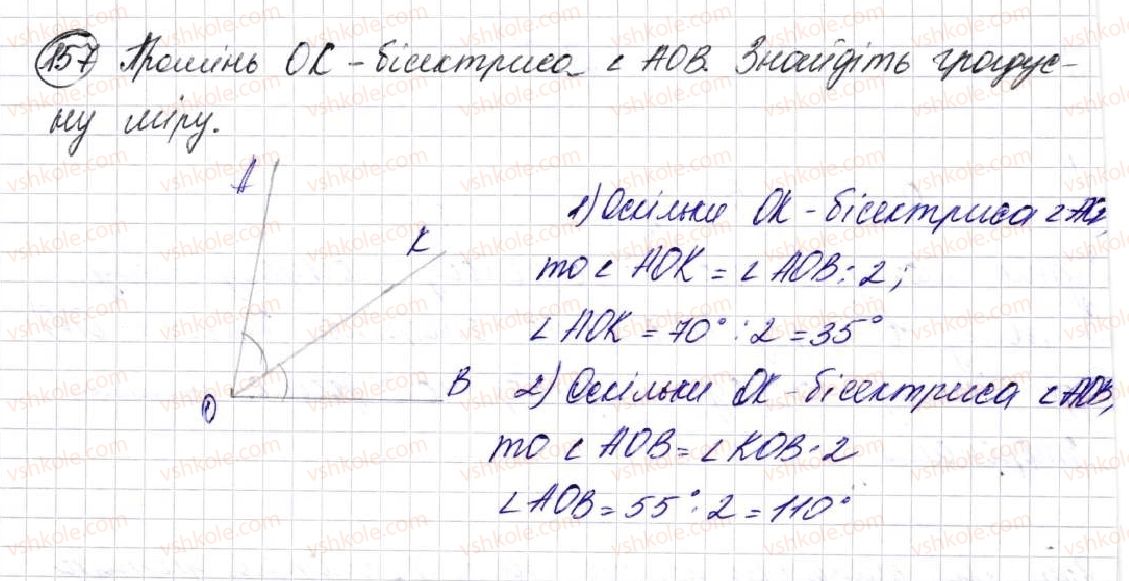 157 Промінь OK - бісектриса ∠ AOB. Знайдіть градус-
ну міру.
A
K
B
O
1) Оскільки OK - бісектриса ∠
то ∠ AOK = ∠ AOB : 2;
∠ AOK = 70° : 2 = 35°
2) Оскільки OK - бісектриса ∠ AOB,
то ∠ AOB = ∠ KOB · 2
∠ AOB = 55° · 2 = 110°
vshkole.com